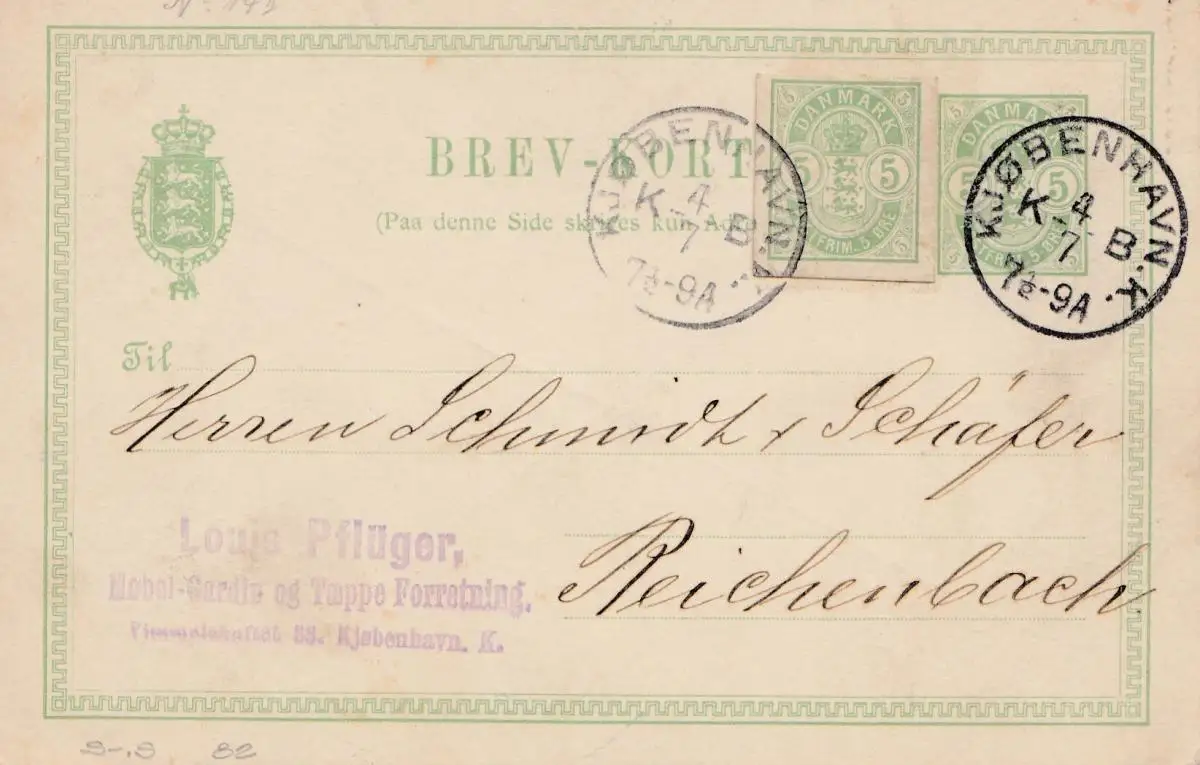 No 143
BREV-KORT
(Paa denne Side skrives kun Adr
DANMARK
5 5
5 5
FRIM. 5 ØRE
DANMARK
5 5
FRIM. 5 ØRE
KJØBENHAVN
K 4 B
7
7½-9A
KJØBENHAVN.K.
K 4 B
7
7½-9A
Til
Herren Schmidt & Schäfer
Reichenbach
Louis Pflüger,
Møbel-Gardin og Tæppe Forretning.
38. Kjøbenhavn. K.
82